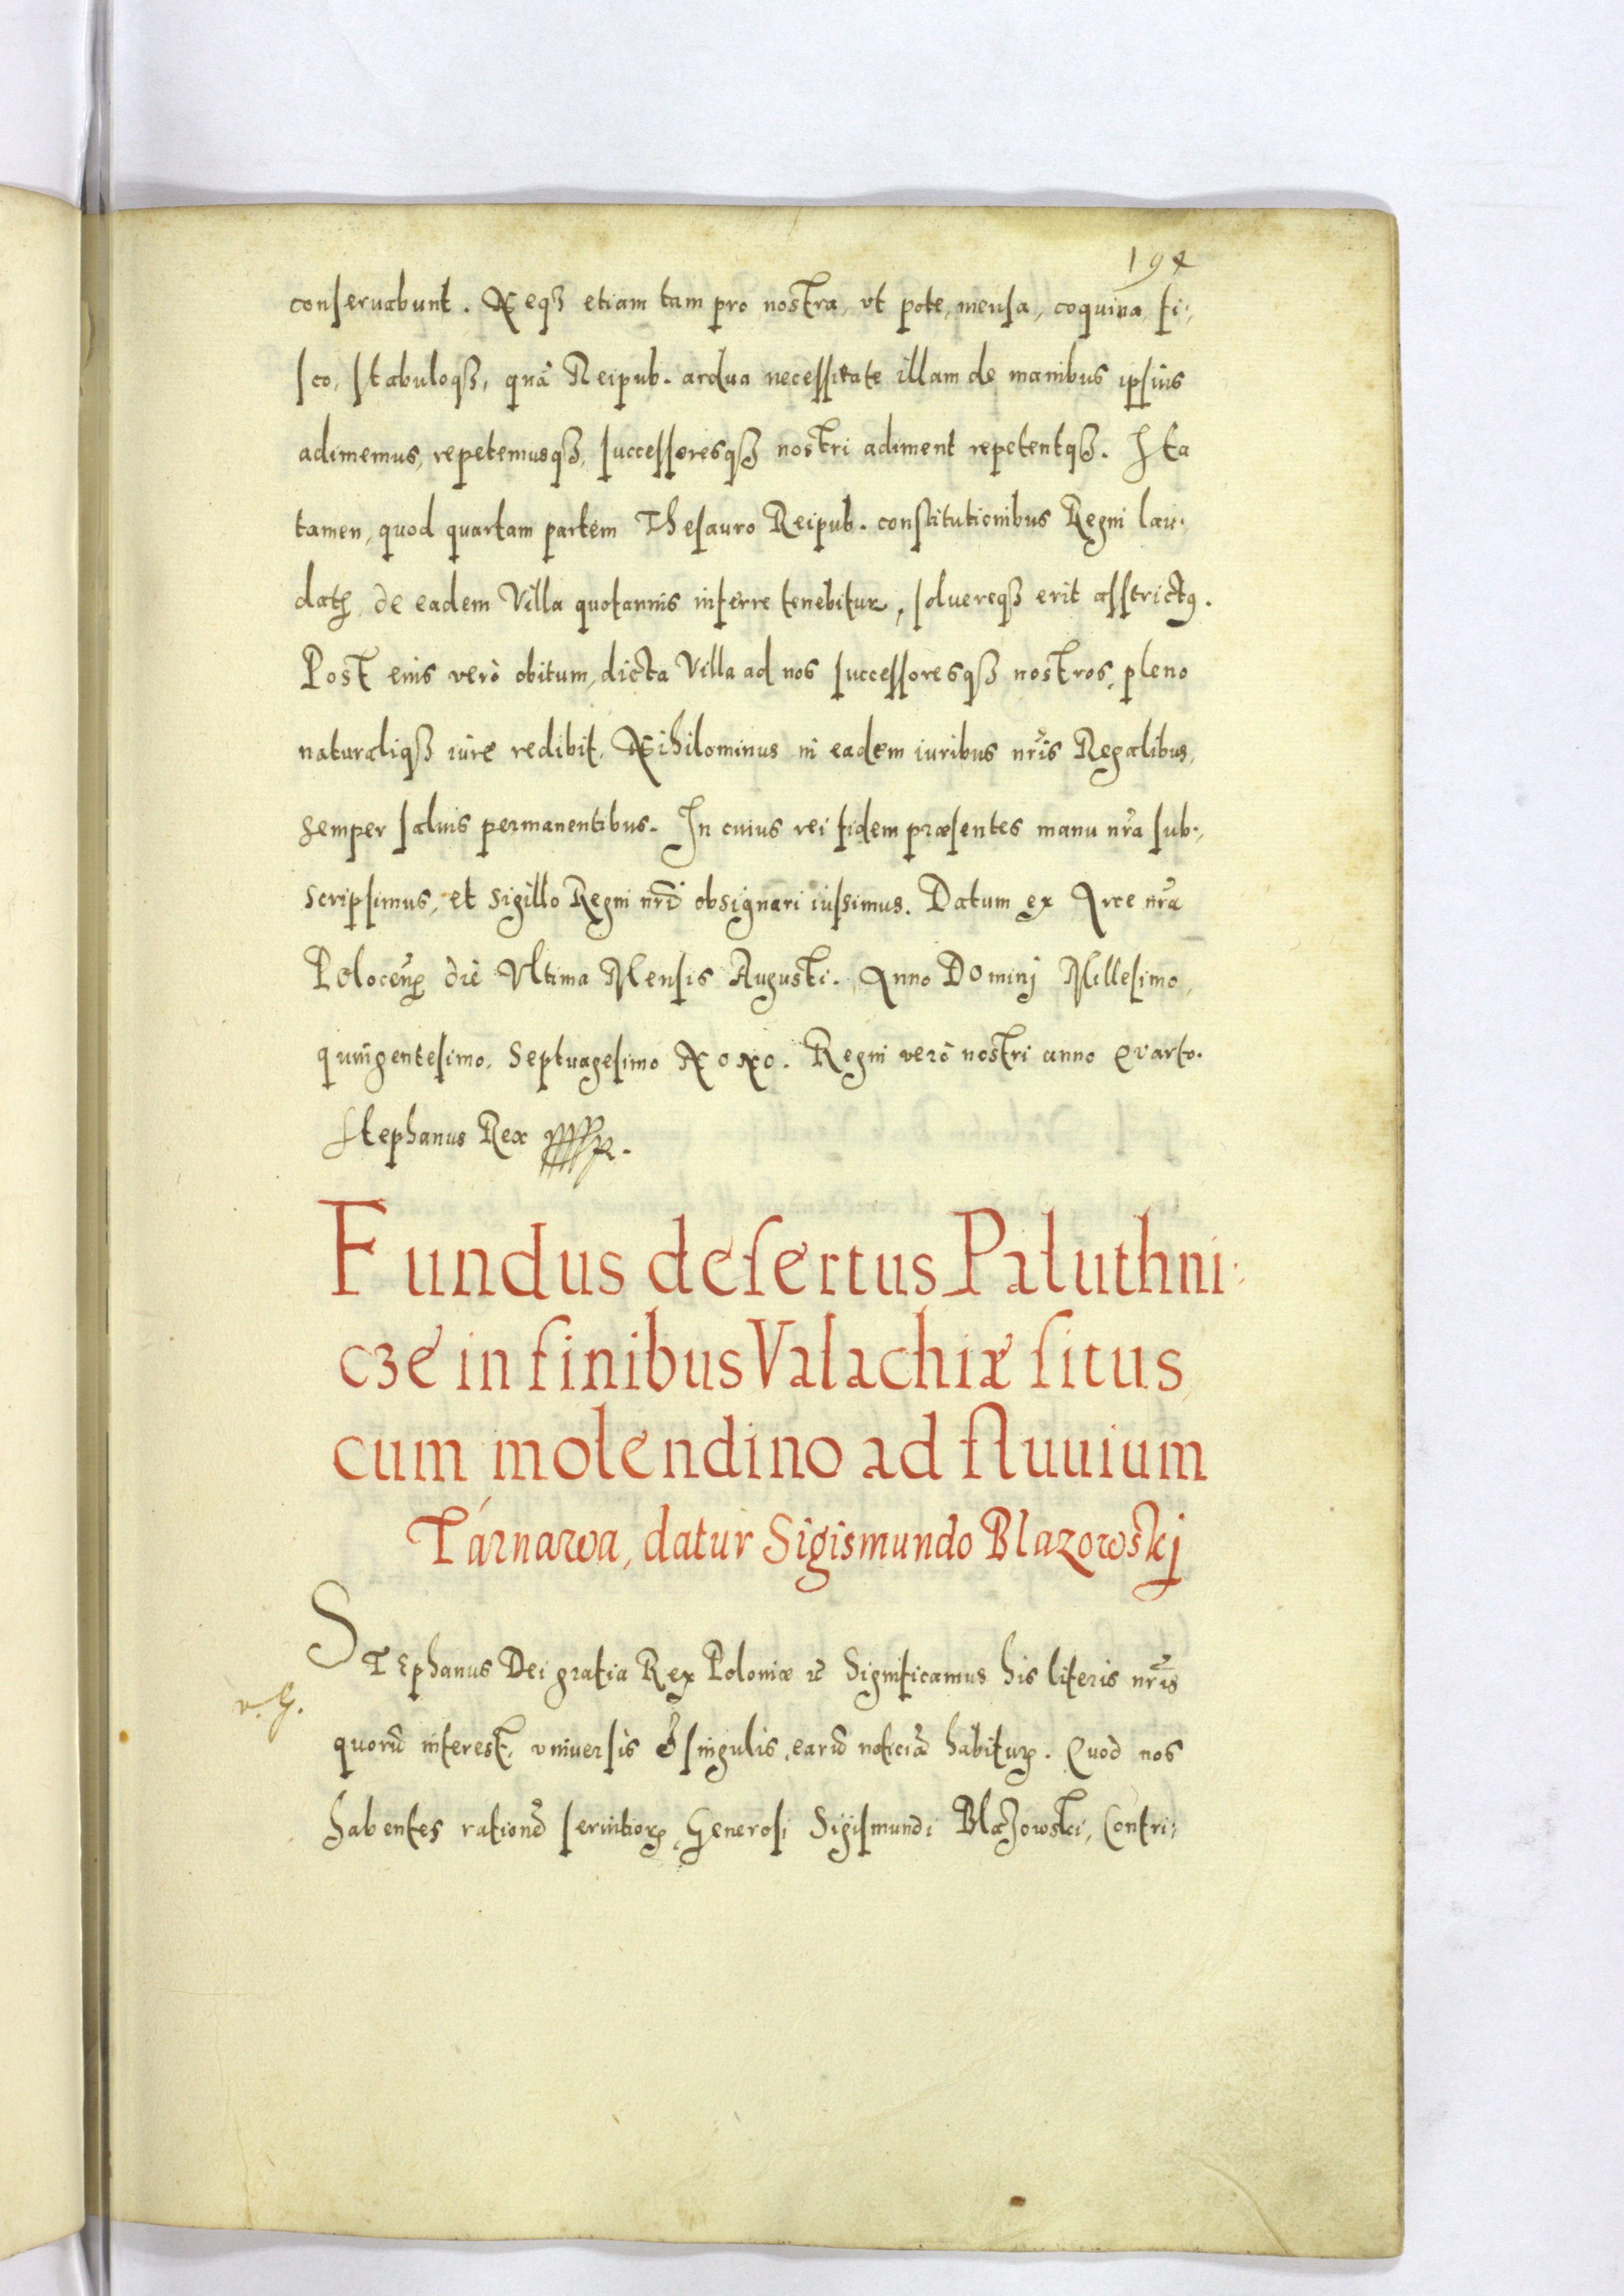 194
conseruabunt. Neqȝ etiam tam pro nostra, vt pote, mensa, coquina, fi-
sco, stabuloqȝ, quā Reipub. ardua necessitate illam de manibus ipsius
adimemus, repetemusqȝ, successoresqȝ nostri adiment repetentqȝ. Ita
tamen, quod quartam partem Thesauro Reipub. constitutionibus Regni lau-
datā de eadem Villa quotannis inferre tenebitur, soluereqȝ erit asstrictꝰ.
Post eius verò obitum, dicta Villa ad nos successoresqȝ nostros, pleno
naturaliqȝ iure redibit, Nihilominus in eadem iuribus nr̃is Regalibus,
semper saluis permanentibus. In cuius rei fidem præsentes manu nr̃a sub-
scripsimus, et sigillo Regni nr̃i obsignari iussimus. Datum ex Arce nr̃a
Poloceñ die Vltima Mensis Augusti. Anno Dominj Millesimo,
quingentesimo, Septuagesimo Nono. Regni verò nostri anno Quarto.
Stephanus Rex
Fundus desertus Paluthni-
cze in finibus Valachiæ situs,
cum molendino ad fluuium
Tárnawa, datur Sigismundo Blazowskj
STEphanus Dei gratia Rex Poloniæ ꝛc̃ Significamus his literis nr̃is
v. G.
quorū interest, vniuersis & singulis, earū noticiā habiturꝭ. Quod nos
habentes rationē seruitiorꝭ, Generosi Sigismundi Blazowski, Contri-